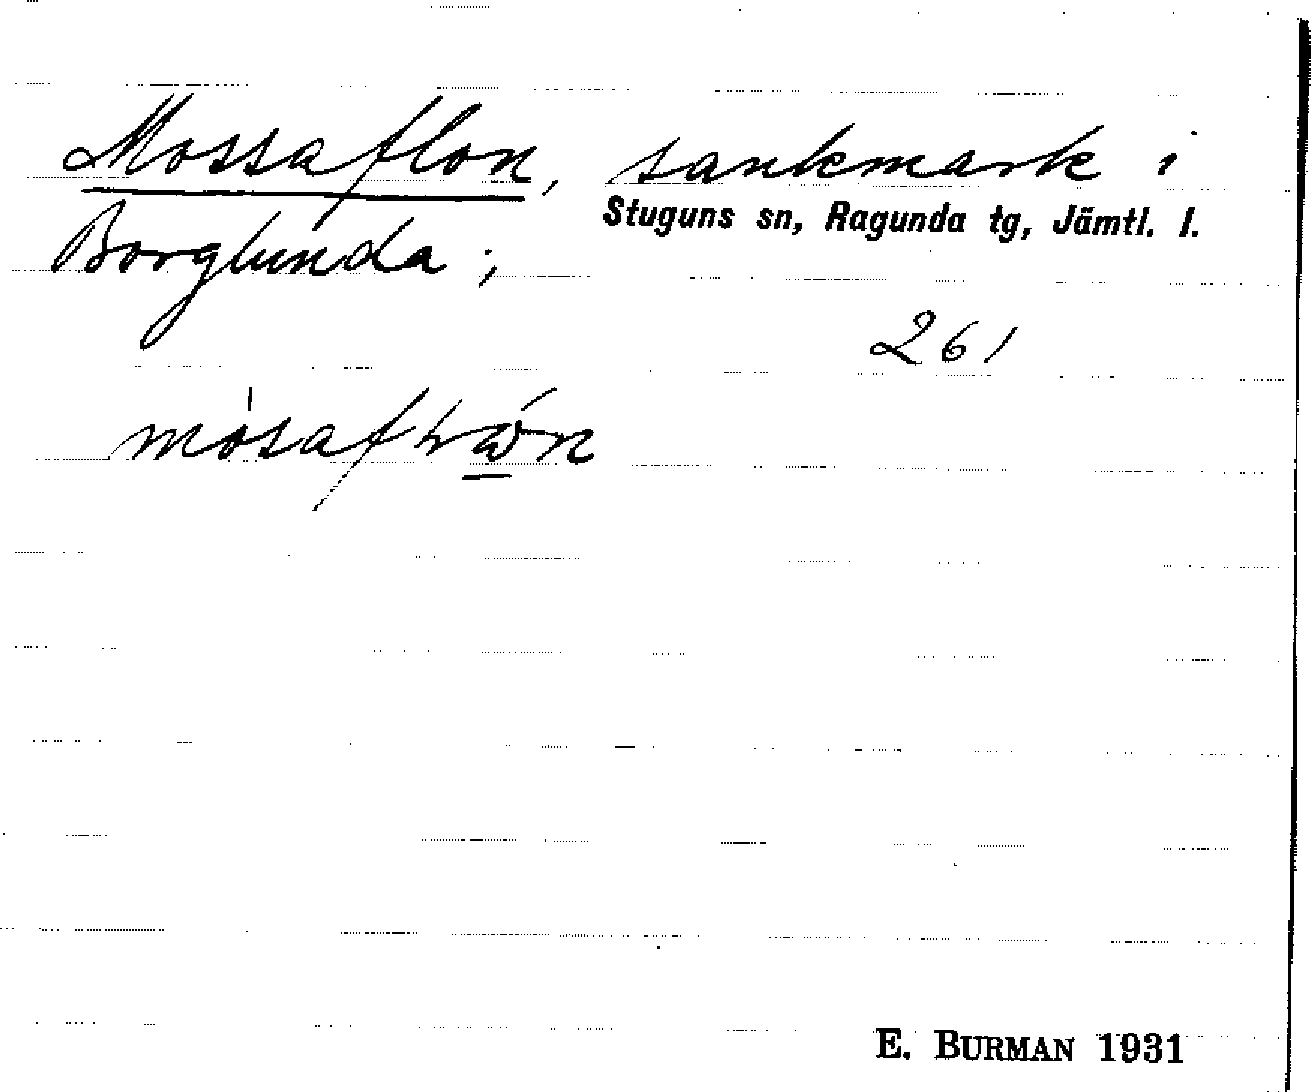 Mossaflon, sankmark i
Stuguns sn, Ragunda tg, Jämtl. l.
Borglunda;
261
E. BURMAN 1931